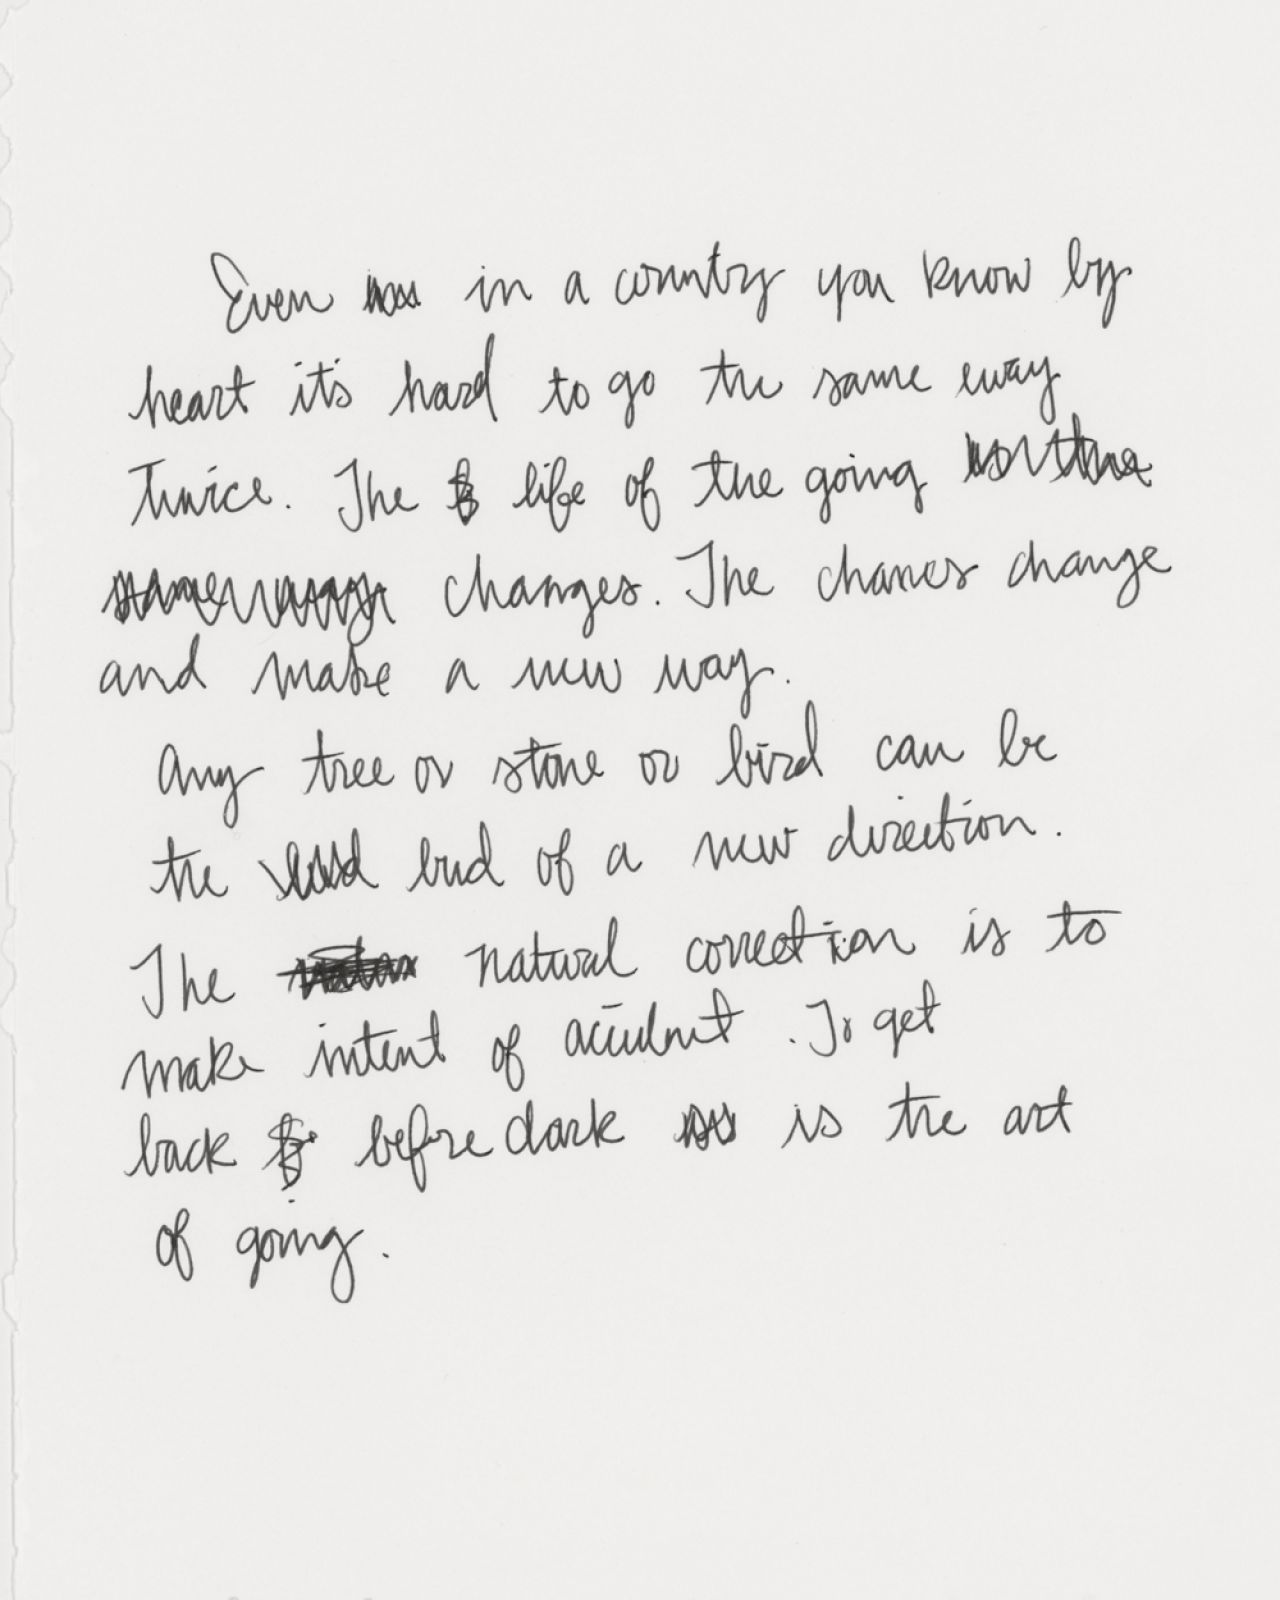 Even in a country you know by
heart it's hard to go the same way
twice. The life of the going
changes. The chances change
and make a new way.
Any tree or stone or bird can be
the bud of a new direction.
The natural correction is to
make intent of accident. To get
back before dark is the art
of going.